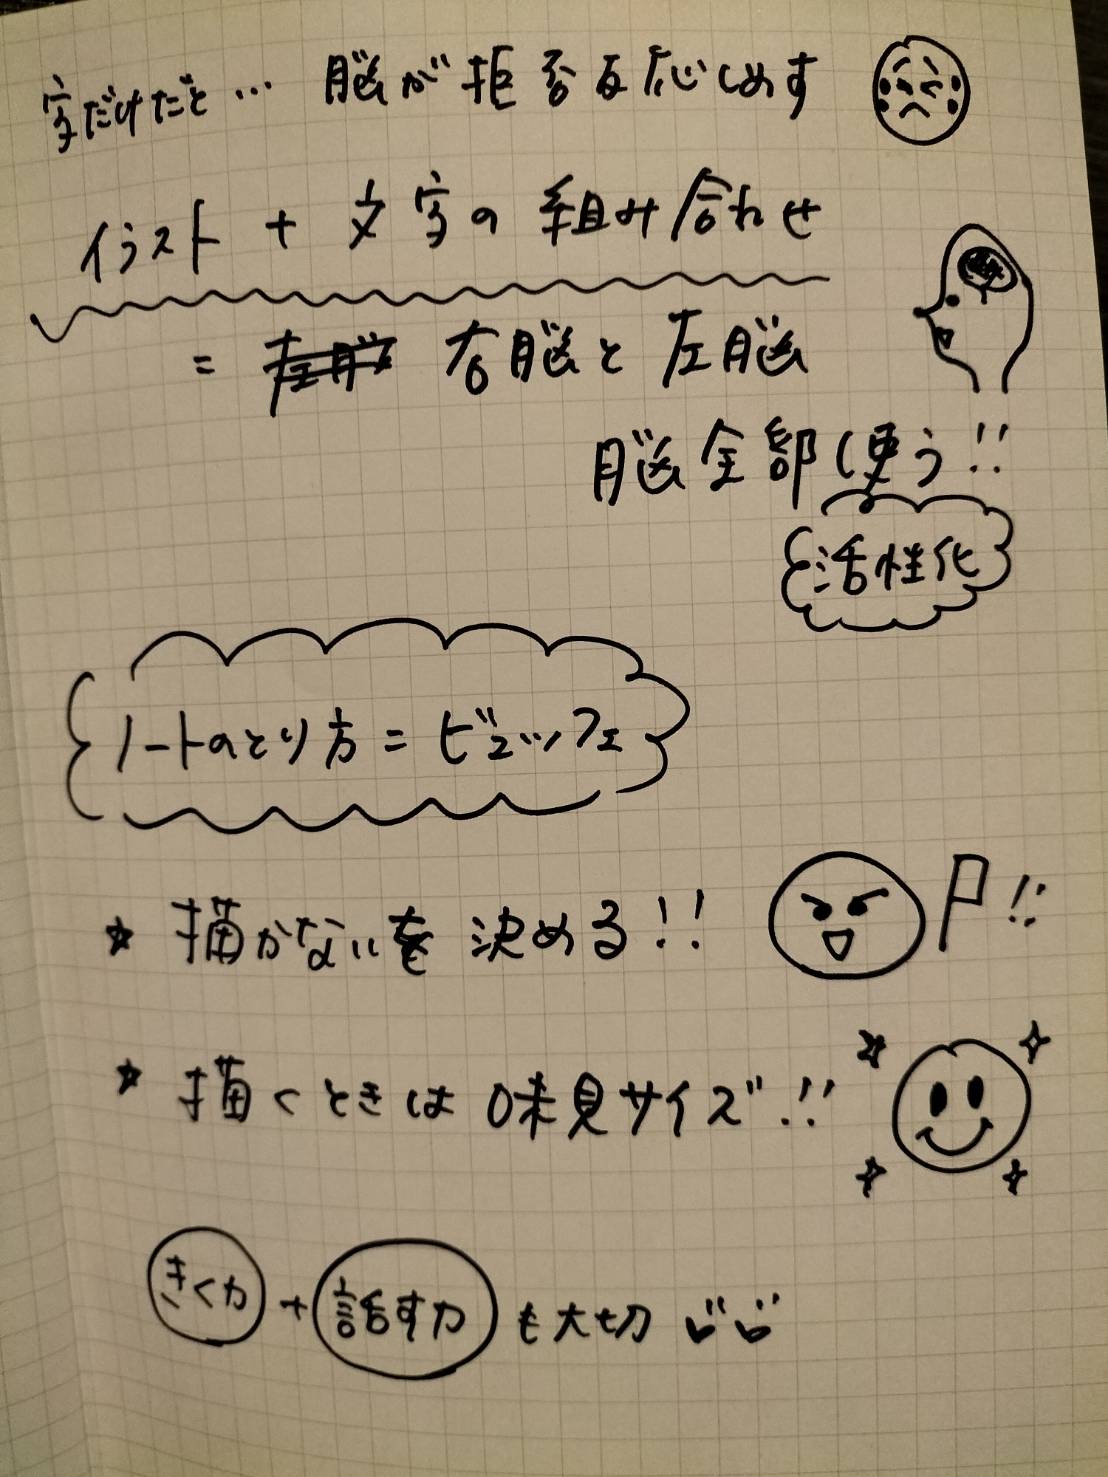 字だけだと… 脳が拒否反応しめす
イラスト + 文字の組み合わせ
= 左脳 右脳と左脳
脳全部使う!!
活性化
ノートのとり方 = ビュッフェ
★ 描かないを決める!!
★ 描くときは味見サイズ!!
きく力 + 話す力 も大切